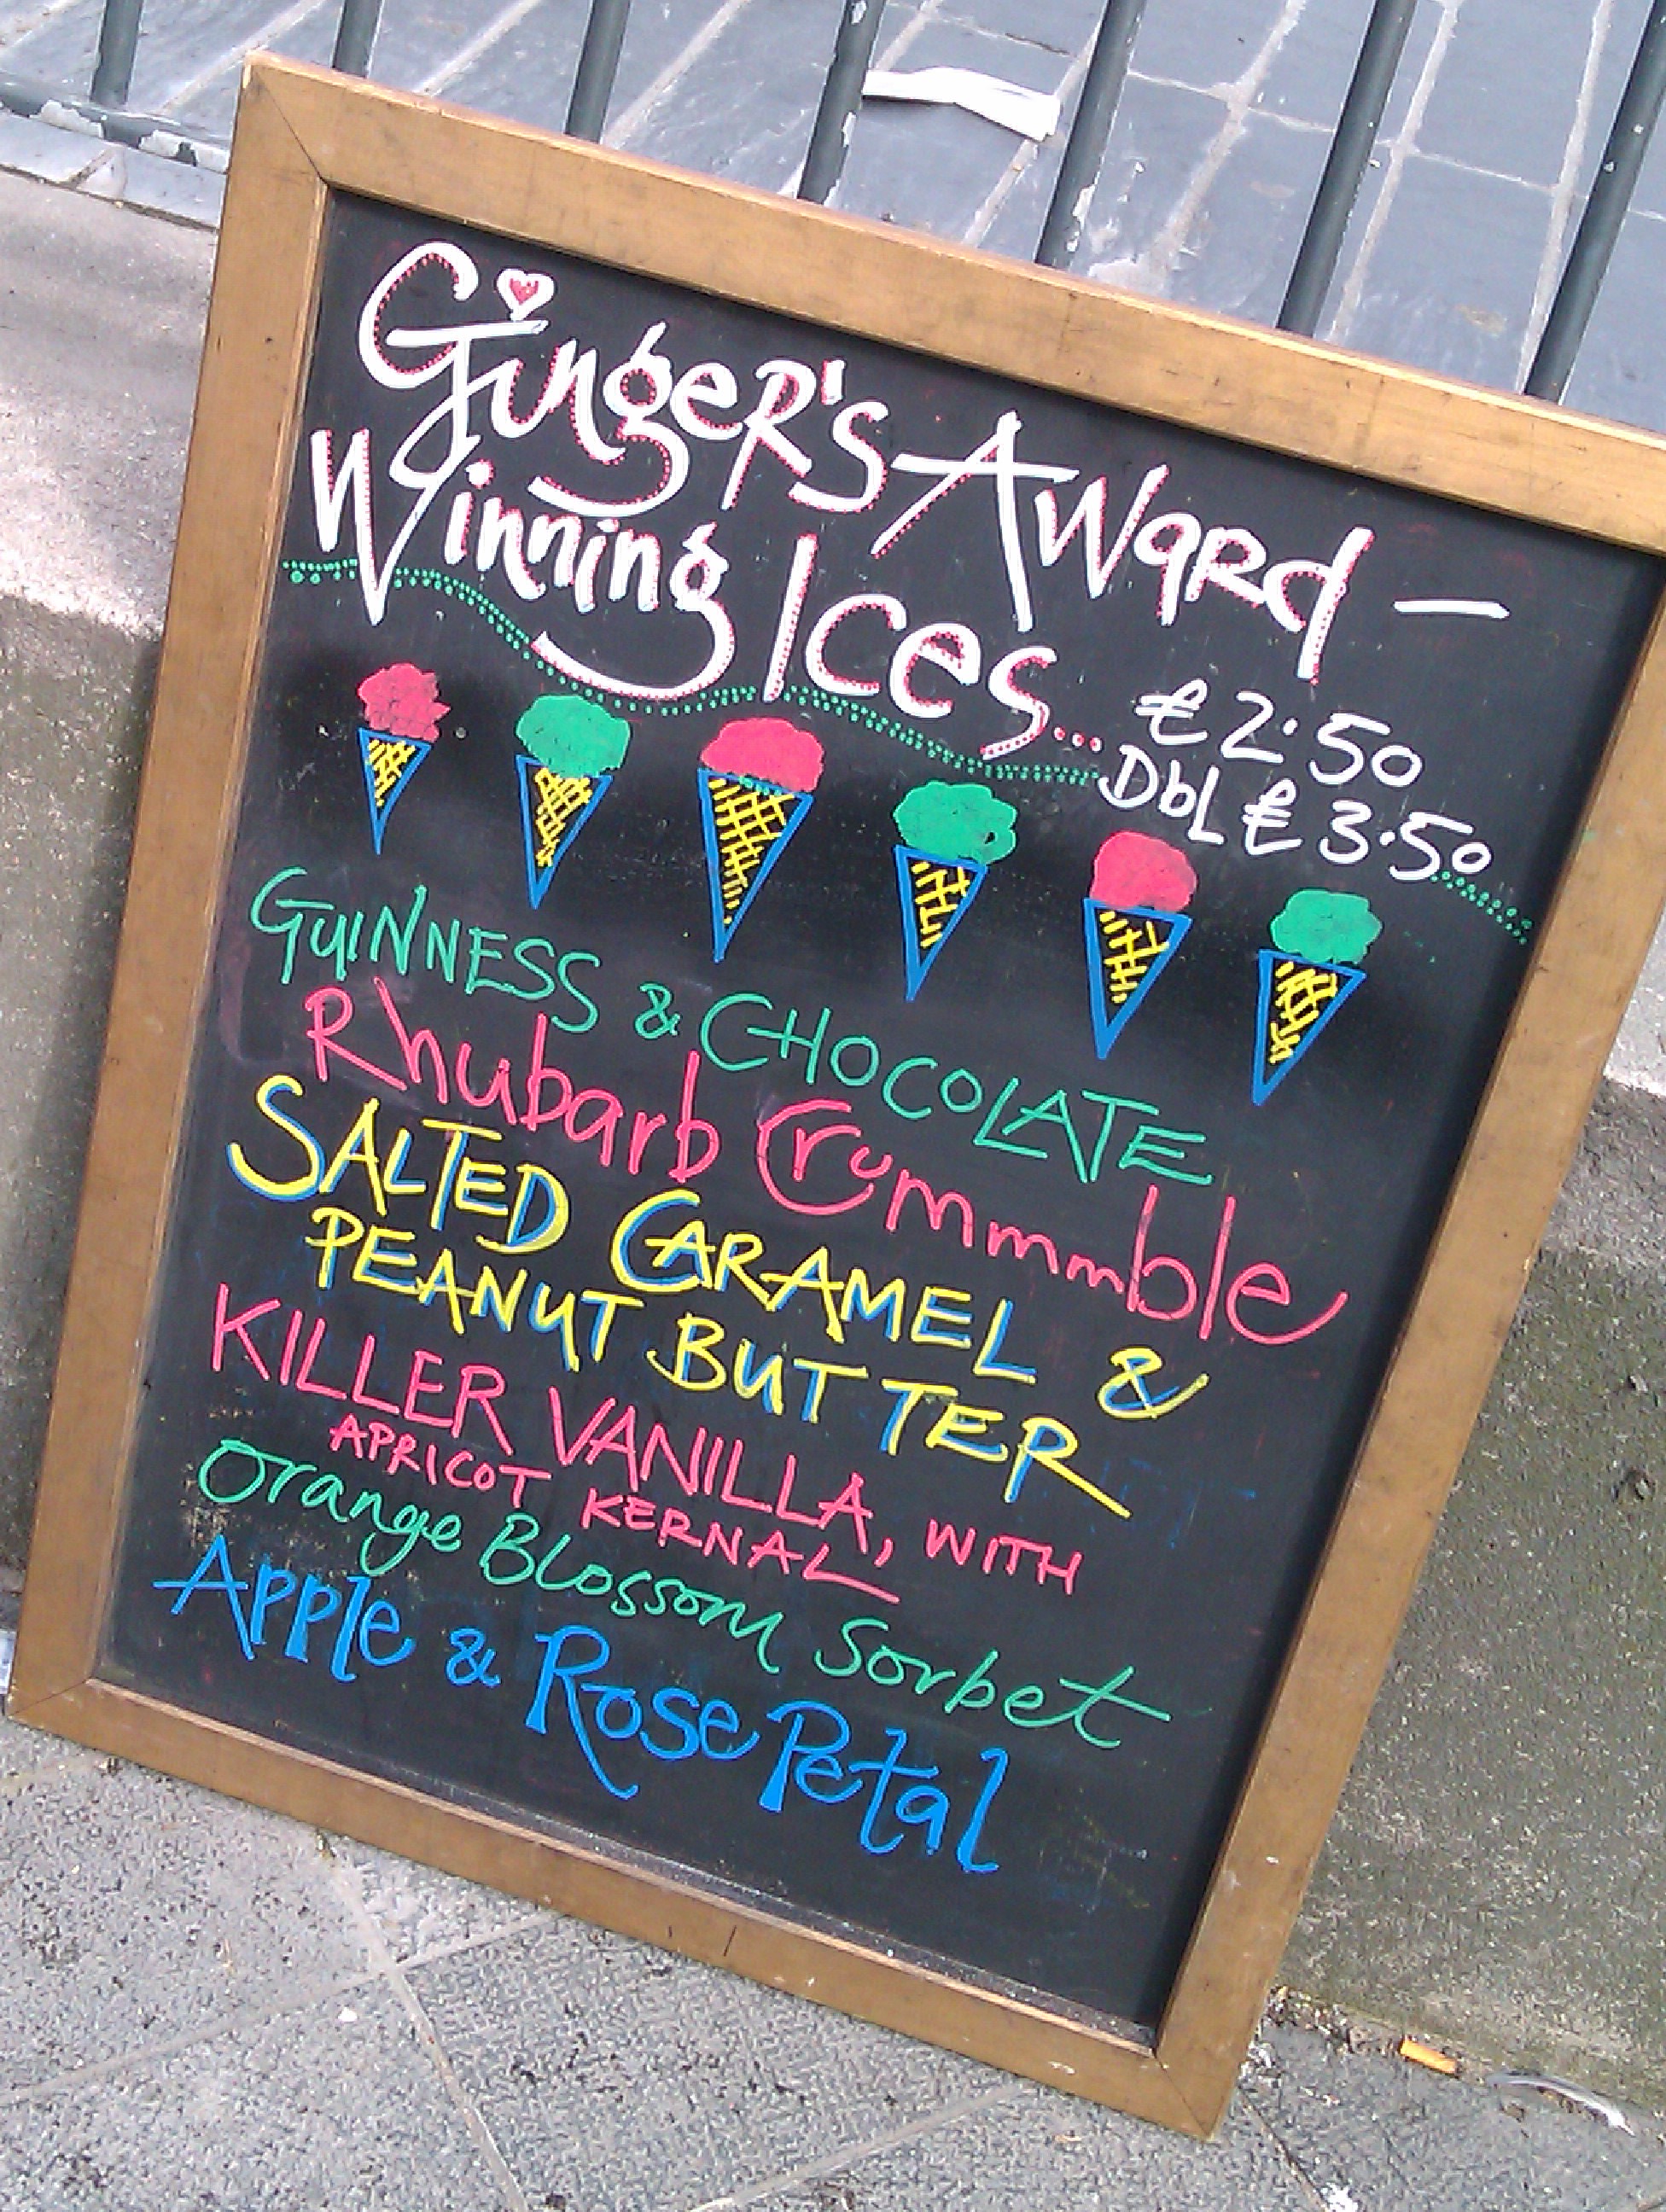 Ginger's Award -
Winning Ices...
£2.50
Dbl £3.50
GUINNESS & CHOCOLATE
Rhubarb Crummmble
SALTED CARAMEL &
PEANUT BUTTER
KILLER VANILLA, WITH
APRICOT KERNAL
Orange Blossom Sorbet
Apple & Rose Petal